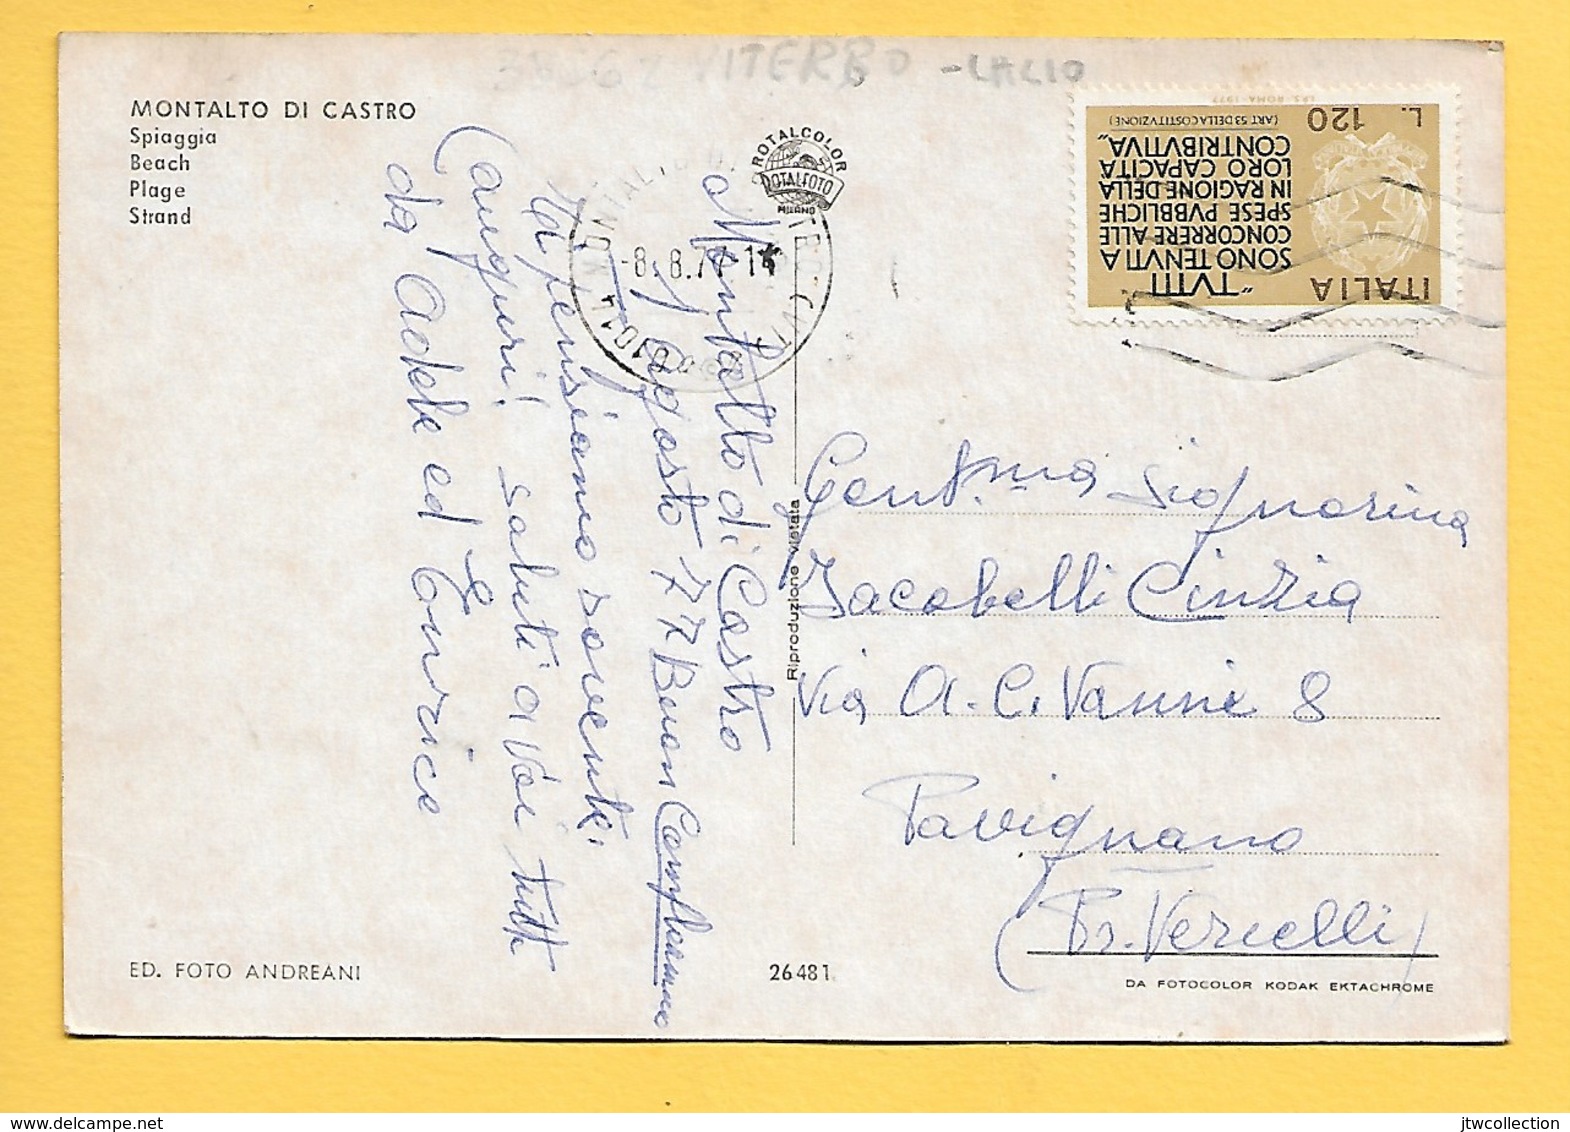 VITERBO - LACIO
MONTALTO DI CASTRO
Spiaggia
Beach
Plage
Strand
ROTALCOLOR
ROTALFOTO
MILANO
I.P.S. - ROMA - 1977
ITALIA
L. 120
"TVTTI
SONO TENVTI A
CONCORRERE ALLE
SPESE PVBBLICHE
IN RAGIONE DELLA
LORO CAPACITÀ
CONTRIBVTIVA"
(ART. 53 DELLA COSTITVZIONE)
01014 MONTALTO DI CASTRO (VT)
-8.8.77-1
Montalto di Castro
1 Agosto 77 Buon Compleanno
Ti pensiamo sovente.
(auguri! saluti a Voi tutti
da Adele ed Enrico
Riproduzione vietata
Gent.ma Signorina
Jacobelli Cinzia
Via A. C. Vannie 8
Pavignano
(Pr. Vercelli)
ED. FOTO ANDREANI
26481
DA FOTOCOLOR KODAK EKTACHROME
jtwcollection